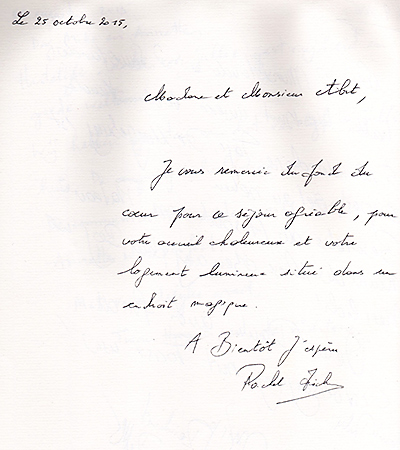 Le 25 octobre 2015,
Madame et Monsieur Abt,
Je vous remercie du fond du
cœur pour ce séjour agréable, pour
votre accueil chaleureux et votre
logement lumineux situé dans un
endroit magique.
A Bientôt J'espère
Rachel